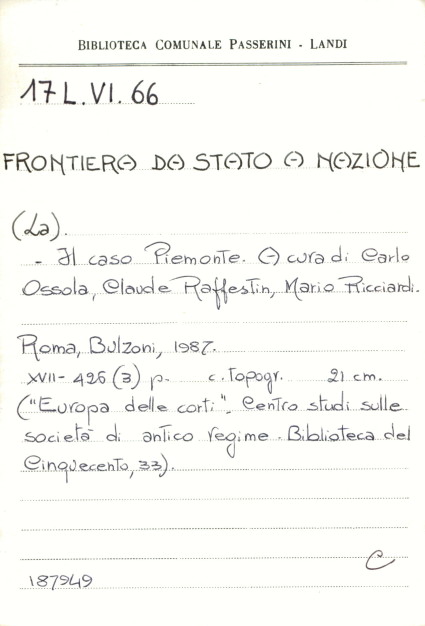 BIBLIOTECA COMUNALE PASSERINI - LANDI
17 L. VI. 66
FRONTIERA DA STATO A NAZIONE
(La).
- Il caso Piemonte. A cura di Carlo
Ossola, Claude Raffestin, Mario Ricciardi.
Roma, Bulzoni, 1987.
XVII- 426 (3) p. c. topogr. 21 cm.
("Europa delle corti". Centro studi sulle
società di antico regime. Biblioteca del
Cinquecento, 33).
C
187949